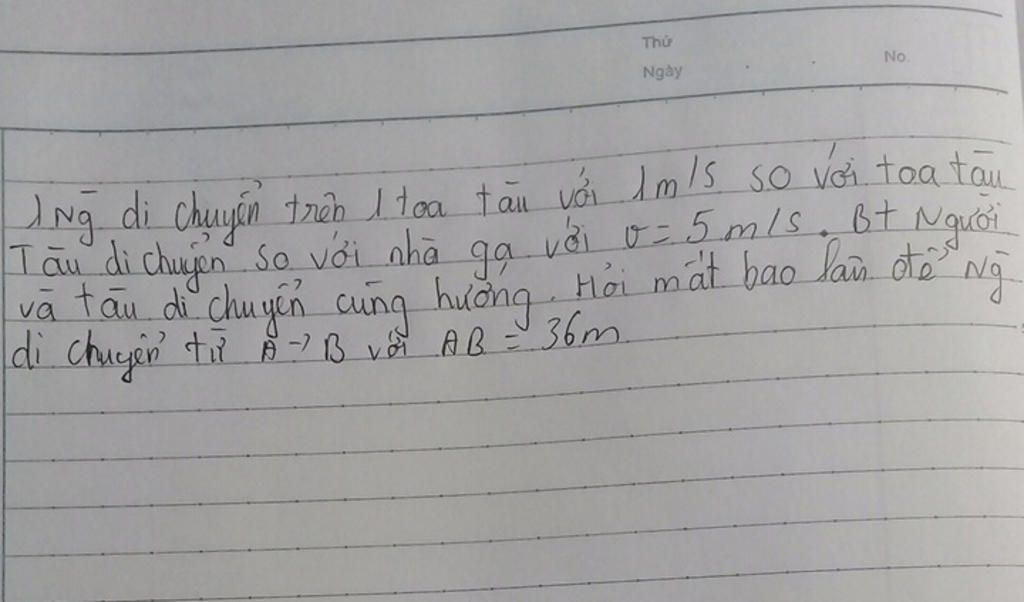 Thứ
Ngày
No.
1 Ng̀ di chuyển trên 1 toa tàu với 1m/s so với toa tàu
Tàu di chuyển so với nhà ga với v = 5 m/s. Bt Người
và tàu di chuyển cùng hướng. Hỏi mất bao lâu để Ng̀
di chuyển từ A → B với AB = 36m